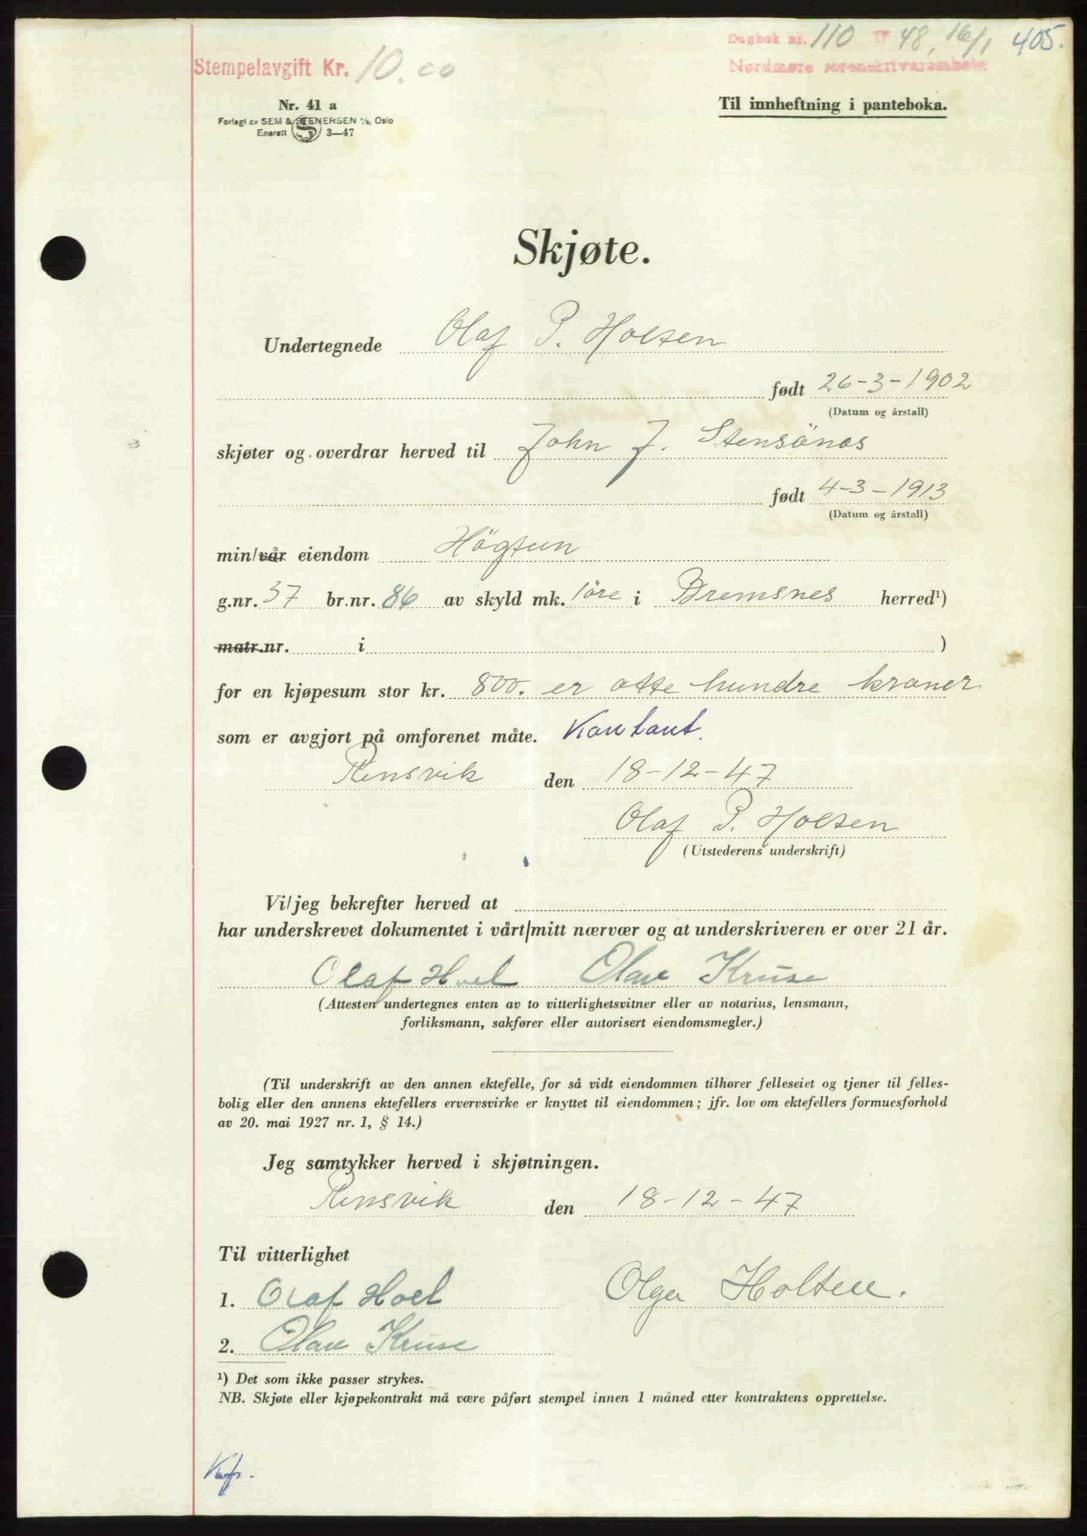 Stempelavgift Kr. 10.00
Dagbok nr. 110 19 48, 16/1 405.
Nordmøre sorenskriverembete
Nr. 41 a
Forlagt av SEM & STENERSEN A/S, Oslo
Enerett S 3—47
Til innheftning i panteboka.
Skjøte.
Undertegnede Olaf P. Holten
født 26-3-1902
(Datum og årstall)
skjøter og overdrar herved til John J. Stensönes
født 4-3-1913
(Datum og årstall)
min/vår eiendom Högtun
g.nr. 37 br.nr. 86 av skyld mk. 1öre i Bremsnes herred¹)
matr.nr. i )
for en kjøpesum stor kr. 800. er otte hundre kroner
som er avgjort på omforenet måte. Kontant.
Rensvik den 18-12-47
Olaf P. Holten
(Utstederens underskrift)
Vi/jeg bekrefter herved at
har underskrevet dokumentet i vårt/mitt nærvær og at underskriveren er over 21 år.
Olaf Hoel Olav Kruse
(Attesten undertegnes enten av to vitterlighetsvitner eller av notarius, lensmann,
forliksmann, sakfører eller autorisert eiendomsmegler.)
(Til underskrift av den annen ektefelle, for så vidt eiendommen tilhører felleseiet og tjener til felles-
bolig eller den annens ektefellers ervervsvirke er knyttet til eiendommen; jfr. lov om ektefellers formuesforhold
av 20. mai 1927 nr. 1, § 14.)
Jeg samtykker herved i skjøtningen.
Rensvik den 18-12-47
Til vitterlighet
1. Olaf Hoel Olga Holten.
2. Olav Kruse
¹) Det som ikke passer strykes.
NB. Skjøte eller kjøpekontrakt må være påført stempel innen 1 måned etter kontraktens opprettelse.